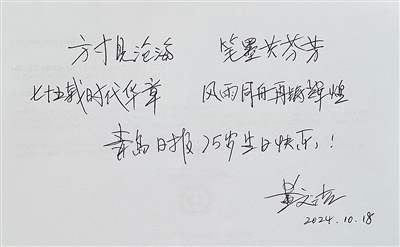 方寸见沧海 笔墨共芬芳
七十五载时代华章 风雨同舟再铸辉煌
青岛日报75岁生日快乐！
2024.10.18